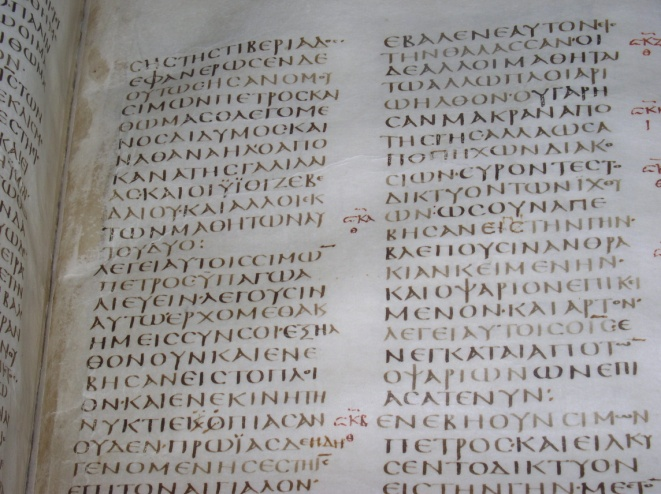 ϹΗϹΤΗϹΤΙΒΕΡΙΑΔ
ΕΦΑΝΕΡΩϹΕΝΔΕ
ΟΥΤΩϹΗϹΑΝΟΜΟΥ
ϹΙΜΩΝΠΕΤΡΟϹΚΑΙ
ΘΩΜΑϹΟΛΕΓΟΜΕ
ΝΟϹΔΙΔΥΜΟϹΚΑΙ
ΝΑΘΑΝΑΗΛΟΑΠΟ
ΚΑΝΑΤΗϹΓΑΛΙΛΑΙ
ΑϹ·ΚΑΙΟΙΥΪΟΙΖΕΒΕ
ΔΑΙΟΥ·ΚΑΙΑΛΛΟΙ·ΕΚ
ΤΩΝΜΑΘΗΤΩΝΑΥ
ΤΟΥΔΥΟ:
ΛΕΓΕΙΑΥΤΟΙϹϹΙΜΩ̅
ΠΕΤΡΟϹΫΠΑΓΩΑ
ΛΙΕΥΕΙΝ·ΛΕΓΟΥϹΙΝ
ΑΥΤΩ·ΕΡΧΟΜΕΘΑΚ
ΗΜΕΙϹϹΥΝϹΟΙ·ΕΞΗΛ
ΘΟΝΟΥΝΚΑΙΕΝΕ
ΒΗϹΑΝΕΙϹΤΟΠΛΟΙ
ΟΝ·ΚΑΙΕΝΕΚΙΝΗΤΗ
ΝΥΚΤΙΕΙΧΟΠΙΑϹΑΝ
ΟΥΔΕΝ·ΠΡΩΪΑϹΔΕΗΔΗ
ΓΕΝΟΜΕΝΗϹΕϹΤΗΙ̅Ϲ̅
ΕΠΙΤΟΝΑΙΓΙΑΛΟΝ·
ΕΒΑΛΕΝΕΑΥΤΟΝ·ΕΙϹ
ΤΗΝΘΑΛΑϹϹΑΝ·ΟΙ
ΔΕΑΛΛΟΙΜΑΘΗΤΑΙ
ΤΩΑΛΛΩΠΛΟΙΑΡΙ
ΩΗΛΘΟΝ·ΟΥΓΑΡΗ
ϹΑΝΜΑΚΡΑΝΑΠΟ
ΤΗϹΓΗϹΑΛΛΑΩϹΑ
ΠΟΠΗΧΩΝΔΙΑΚΟ
ϹΙΩΝ·ϹΥΡΟΝΤΕϹΤΟ
ΔΙΚΤΥΟΝΤΩΝΙΧΘΥ
ΩΝ·ΩϹΟΥΝΑΠΕ
ΒΗϹΑΝΕΙϹΤΗΝΓΗΝ·
ΒΛΕΠΟΥϹΙΝΑΝΘΡΑ
ΚΙΑΝΚΕΙΜΕΝΗΝ·
ΚΑΙΟΨΑΡΙΟΝΕΠΙΚΙ
ΜΕΝΟΝ·ΚΑΙΑΡΤΟΝ·
ΛΕΓΕΙΑΥΤΟΙϹΟΙ̅Ϲ̅Ε
ΝΕΓΚΑΤΑΙΑΠΟΤΩ̅
ΟΨΑΡΙΩΝΩΝΕΠΙ
ΑϹΑΤΕΝΥΝ:
ΕΝΕΒΗΟΥΝϹΙΜΩΝ
ΠΕΤΡΟϹ·ΚΑΙΕΙΛΚΥ
ϹΕΝΤΟΔΙΚΤΥΟΝ
ΕΙϹΤΗΝΓΗΝ·ΜΕϹΤΟ